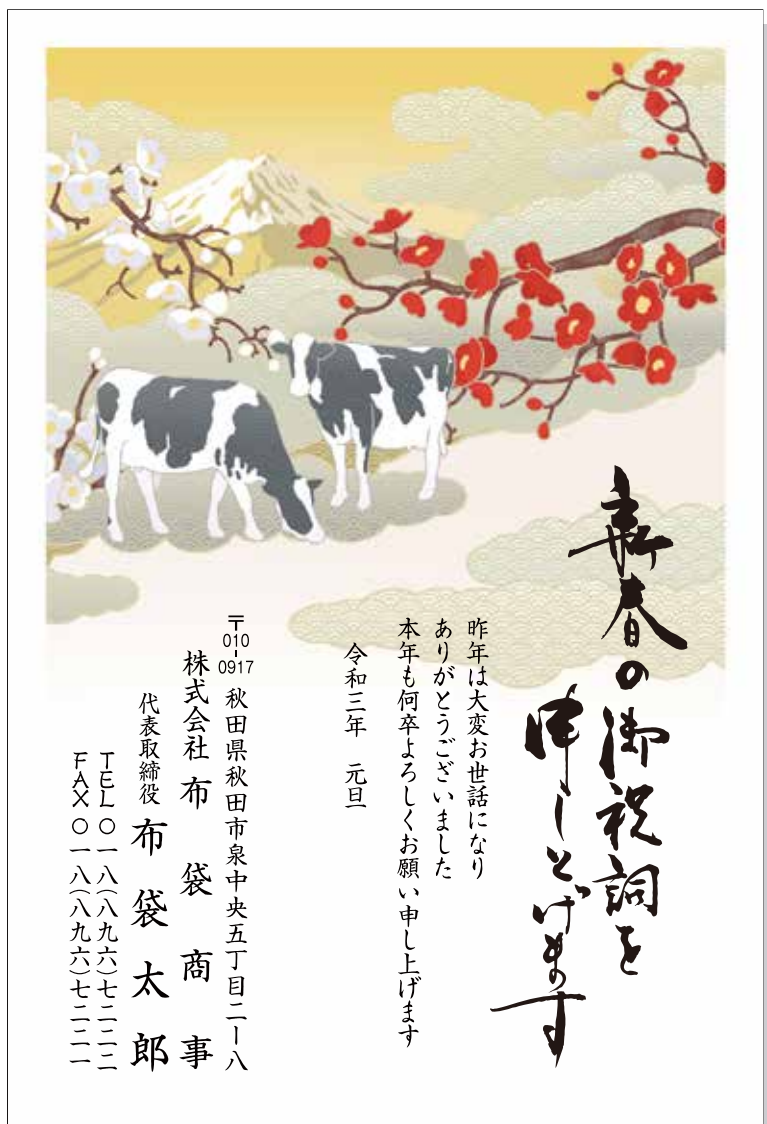 新春の御祝詞を
申し上げます
昨年は大変お世話になり
ありがとうございました
本年も何卒よろしくお願い申し上げます
令和三年　元旦
〒010-0917 秋田県秋田市泉中央五丁目二ー八
株式会社 布袋商事
代表取締役 布袋太郎
TEL〇一八(八九六)七二二二
FAX〇一八(八九六)七二二一